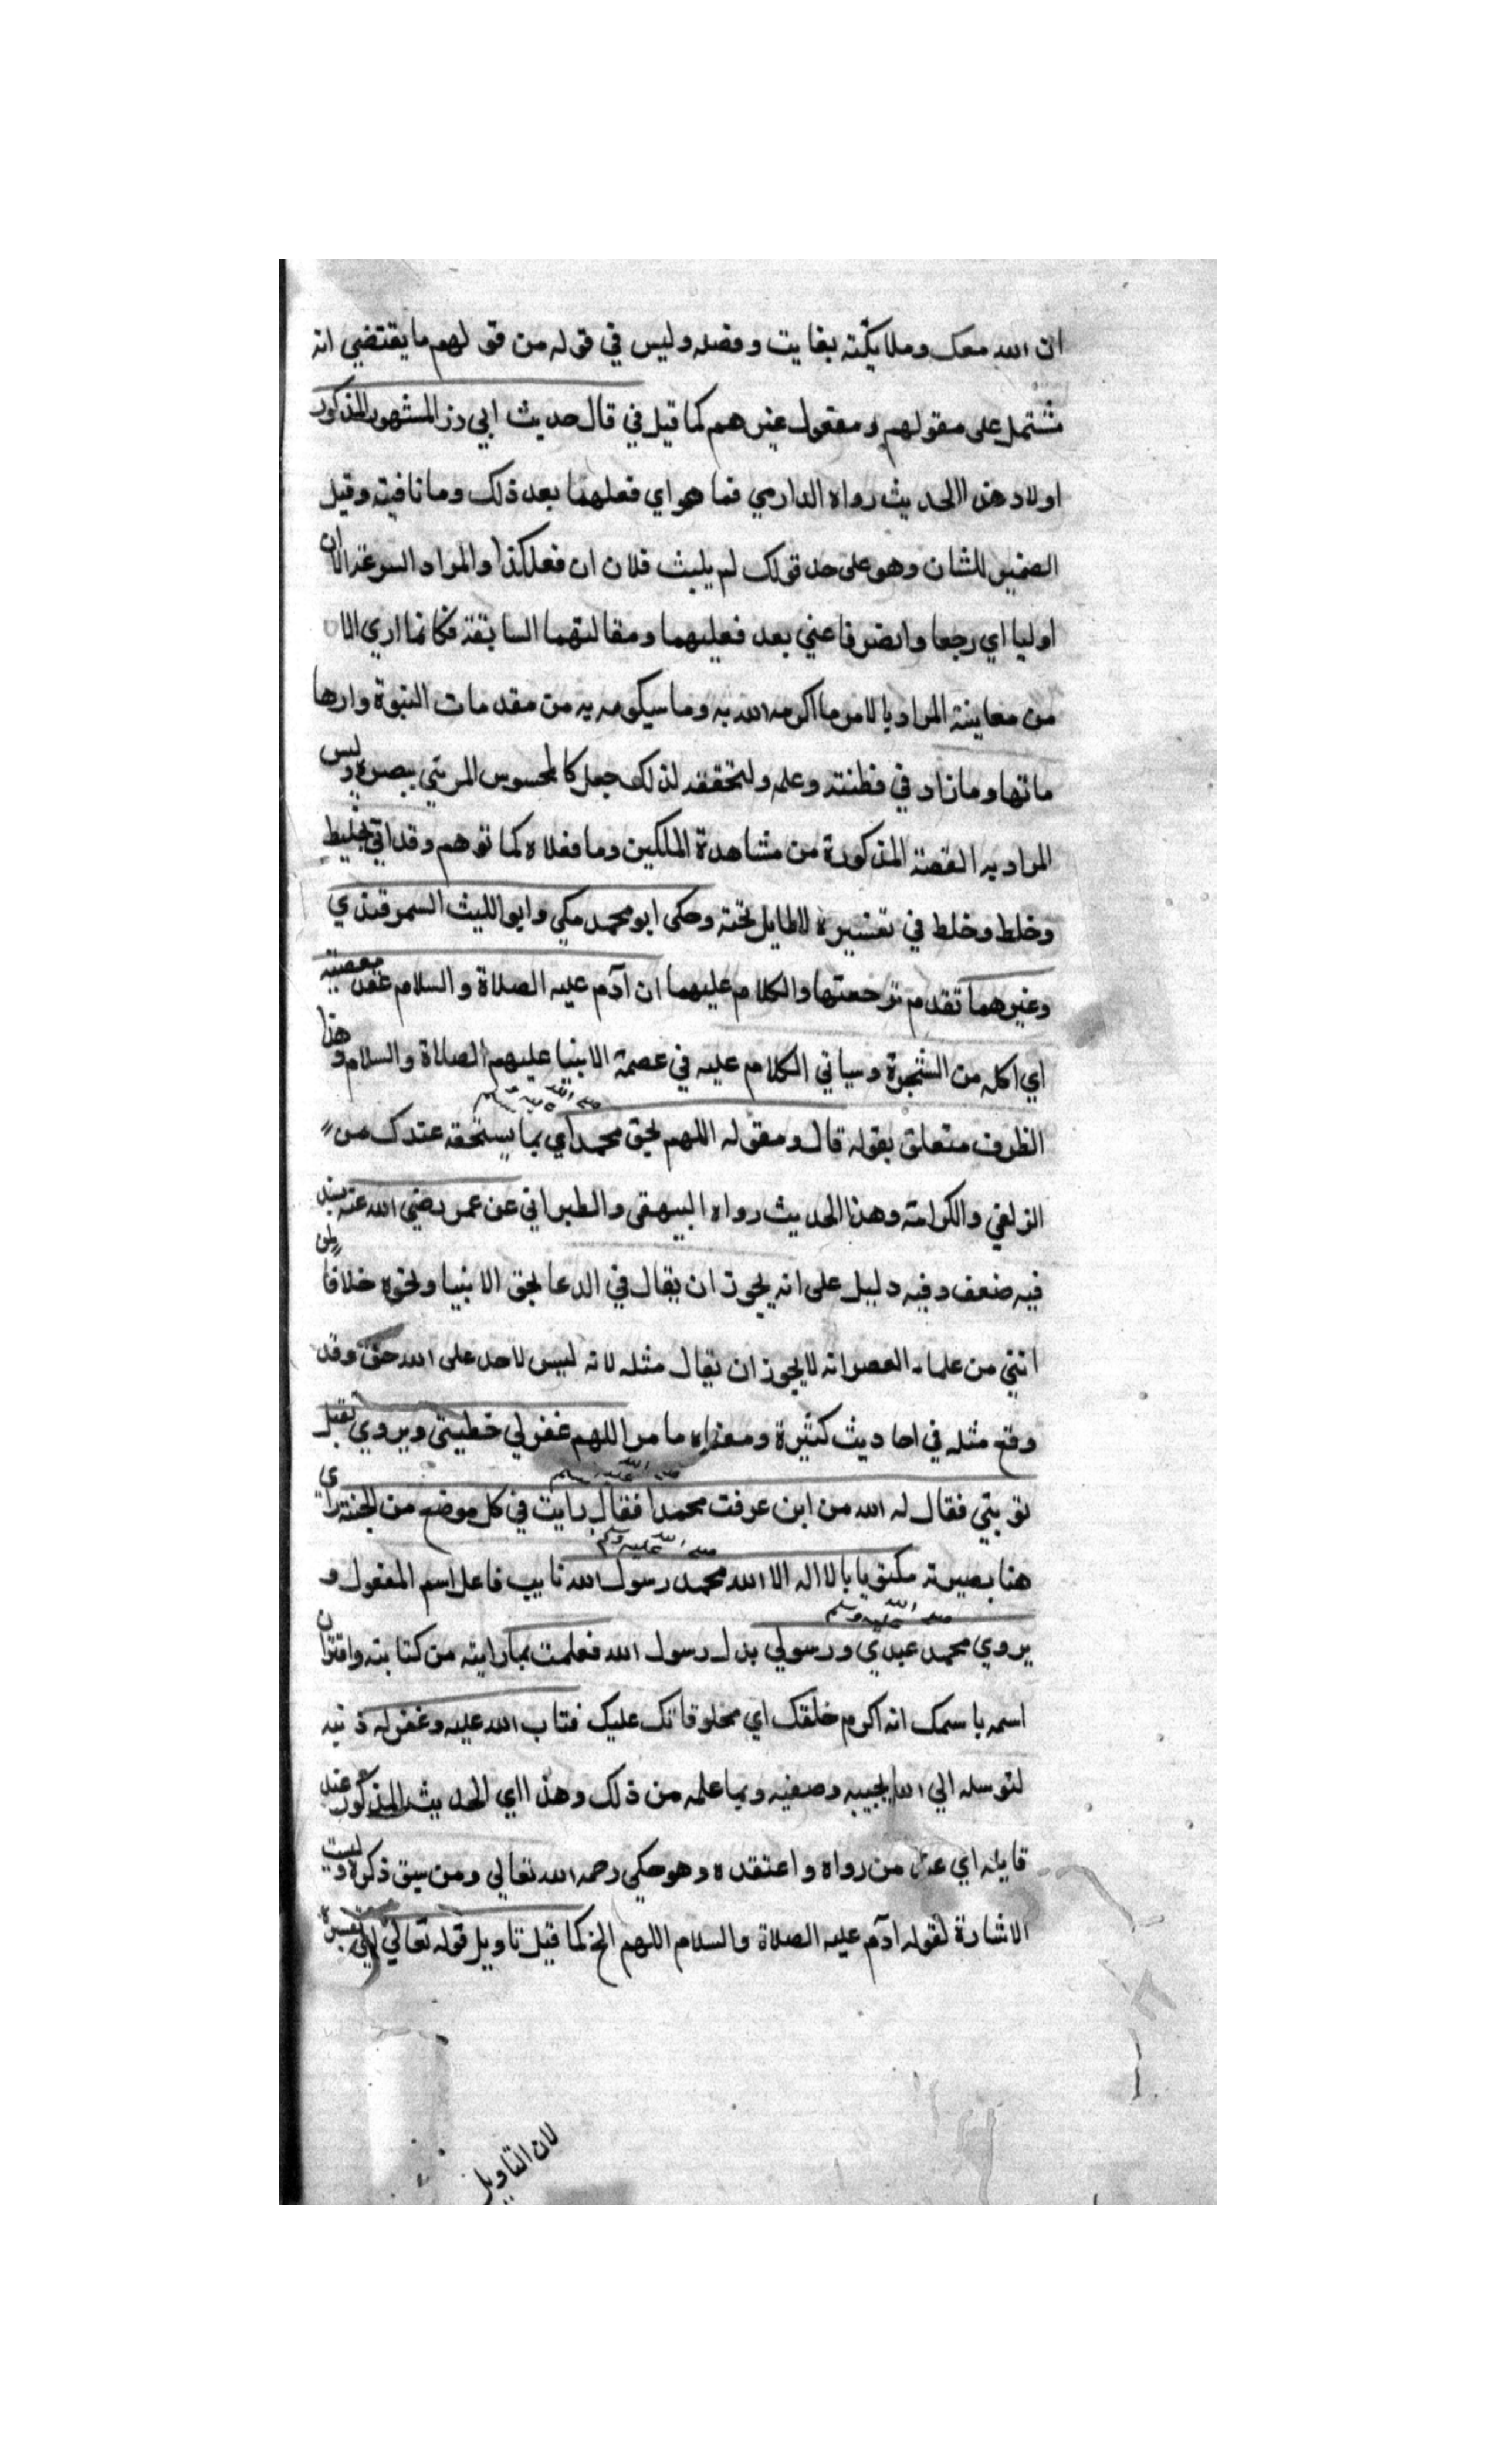 ان الله معك وملايكته بغايت وفضله وليس في قوله من قولهم ما يقتضي انه
مشتمل على مقولهم ومقول غيرهم كما قيل في قال حديث ابي ذر المشهور المذكور
اولا وهذا الحديث رواه الدارمي فما هو اي فعلهما بعد ذلك وما نافية وقيل
الضمير للشان وهو على حد قولك لم يلبث فلان ان فعل كذا والمراد السرعة الا ان
اوليا اي رجعا وانصرفا عني بعد فعليهما ومقالتهما السابقة فكانما اري الا
من معاينة المراد بالامر ما اكرمه الله به وما سيكرمه به من مقدمات النبوة وارها
ماتها وما زاد في فطنته وعلمه ولتحققه لذلك جعل كالمحسوس المرئي ببصره وليس
المراد به القصة المذكورة من مشاهدة الملكين وما فعلاه كما توهم وقد اتى بتخليط
وخلط وخلط في تفسيره لاطايل تحته وحكى ابو محمد مكي وابو الليث السمرقندي
وغيرهما تقدم ترجمتها والكلام عليهما ان آدم عليه الصلاة والسلام عند معصيته
اي اكله من الشجرة وسياتي الكلام عليه في عصمة الانبيا عليهم الصلاة والسلام وهذا
الظرف متعلق بقوله قال ومقوله اللهم بحق محمد صلى الله عليه وسلم اي بما يستحقه عندك من
الزلفي والكرامة وهذا الحديث رواه البيهقى والطبراني عن عمر رضي الله عنه بسند
فيه ضعف وفيه دليل على انه يجوز ان يقال في الدعا بحق الانبيا ونحوه خلافا لمن
افتي من علماء العصر انه لا يجوز ان يقال مثله لانه ليس لاحد على الله حق وقد
وقع مثله في احاديث كثيرة ومعناه ما مر اللهم غفر لي خطيئتي ويروي تقبل
توبتي فقال له الله من اين عرفت محمدا صلى الله عليه وسلم فقال رايت في كل موضع من الجنة راي
هنا بصيرته مكتوبا بالا اله الا الله محمد رسول الله صلى الله عليه وسلم نايب فاعل اسم المفعول و
يروي محمد صلى الله عليه وسلم عبدي ورسولي بدل رسول الله فعلمت بما رايته من كتابته واقتران
اسمه باسمك انه اكرم خلقك اي مخلوقاتك عليك فتاب الله عليه وغفر له ذنبه
لتوسله الي الله بحبيبه وصفيه وبما علمه من ذلك وهذا اي الحديث المذكور عند
قايله اي عند من رواه واعتقده وهو مكي رحمه الله تعالي ومن سبق ذكره وليست
الاشارة لقوله ادم عليه الصلاة والسلام اللهم الخ كما قيل تاويل قوله تعالي اي تفسيره
لان التاويل